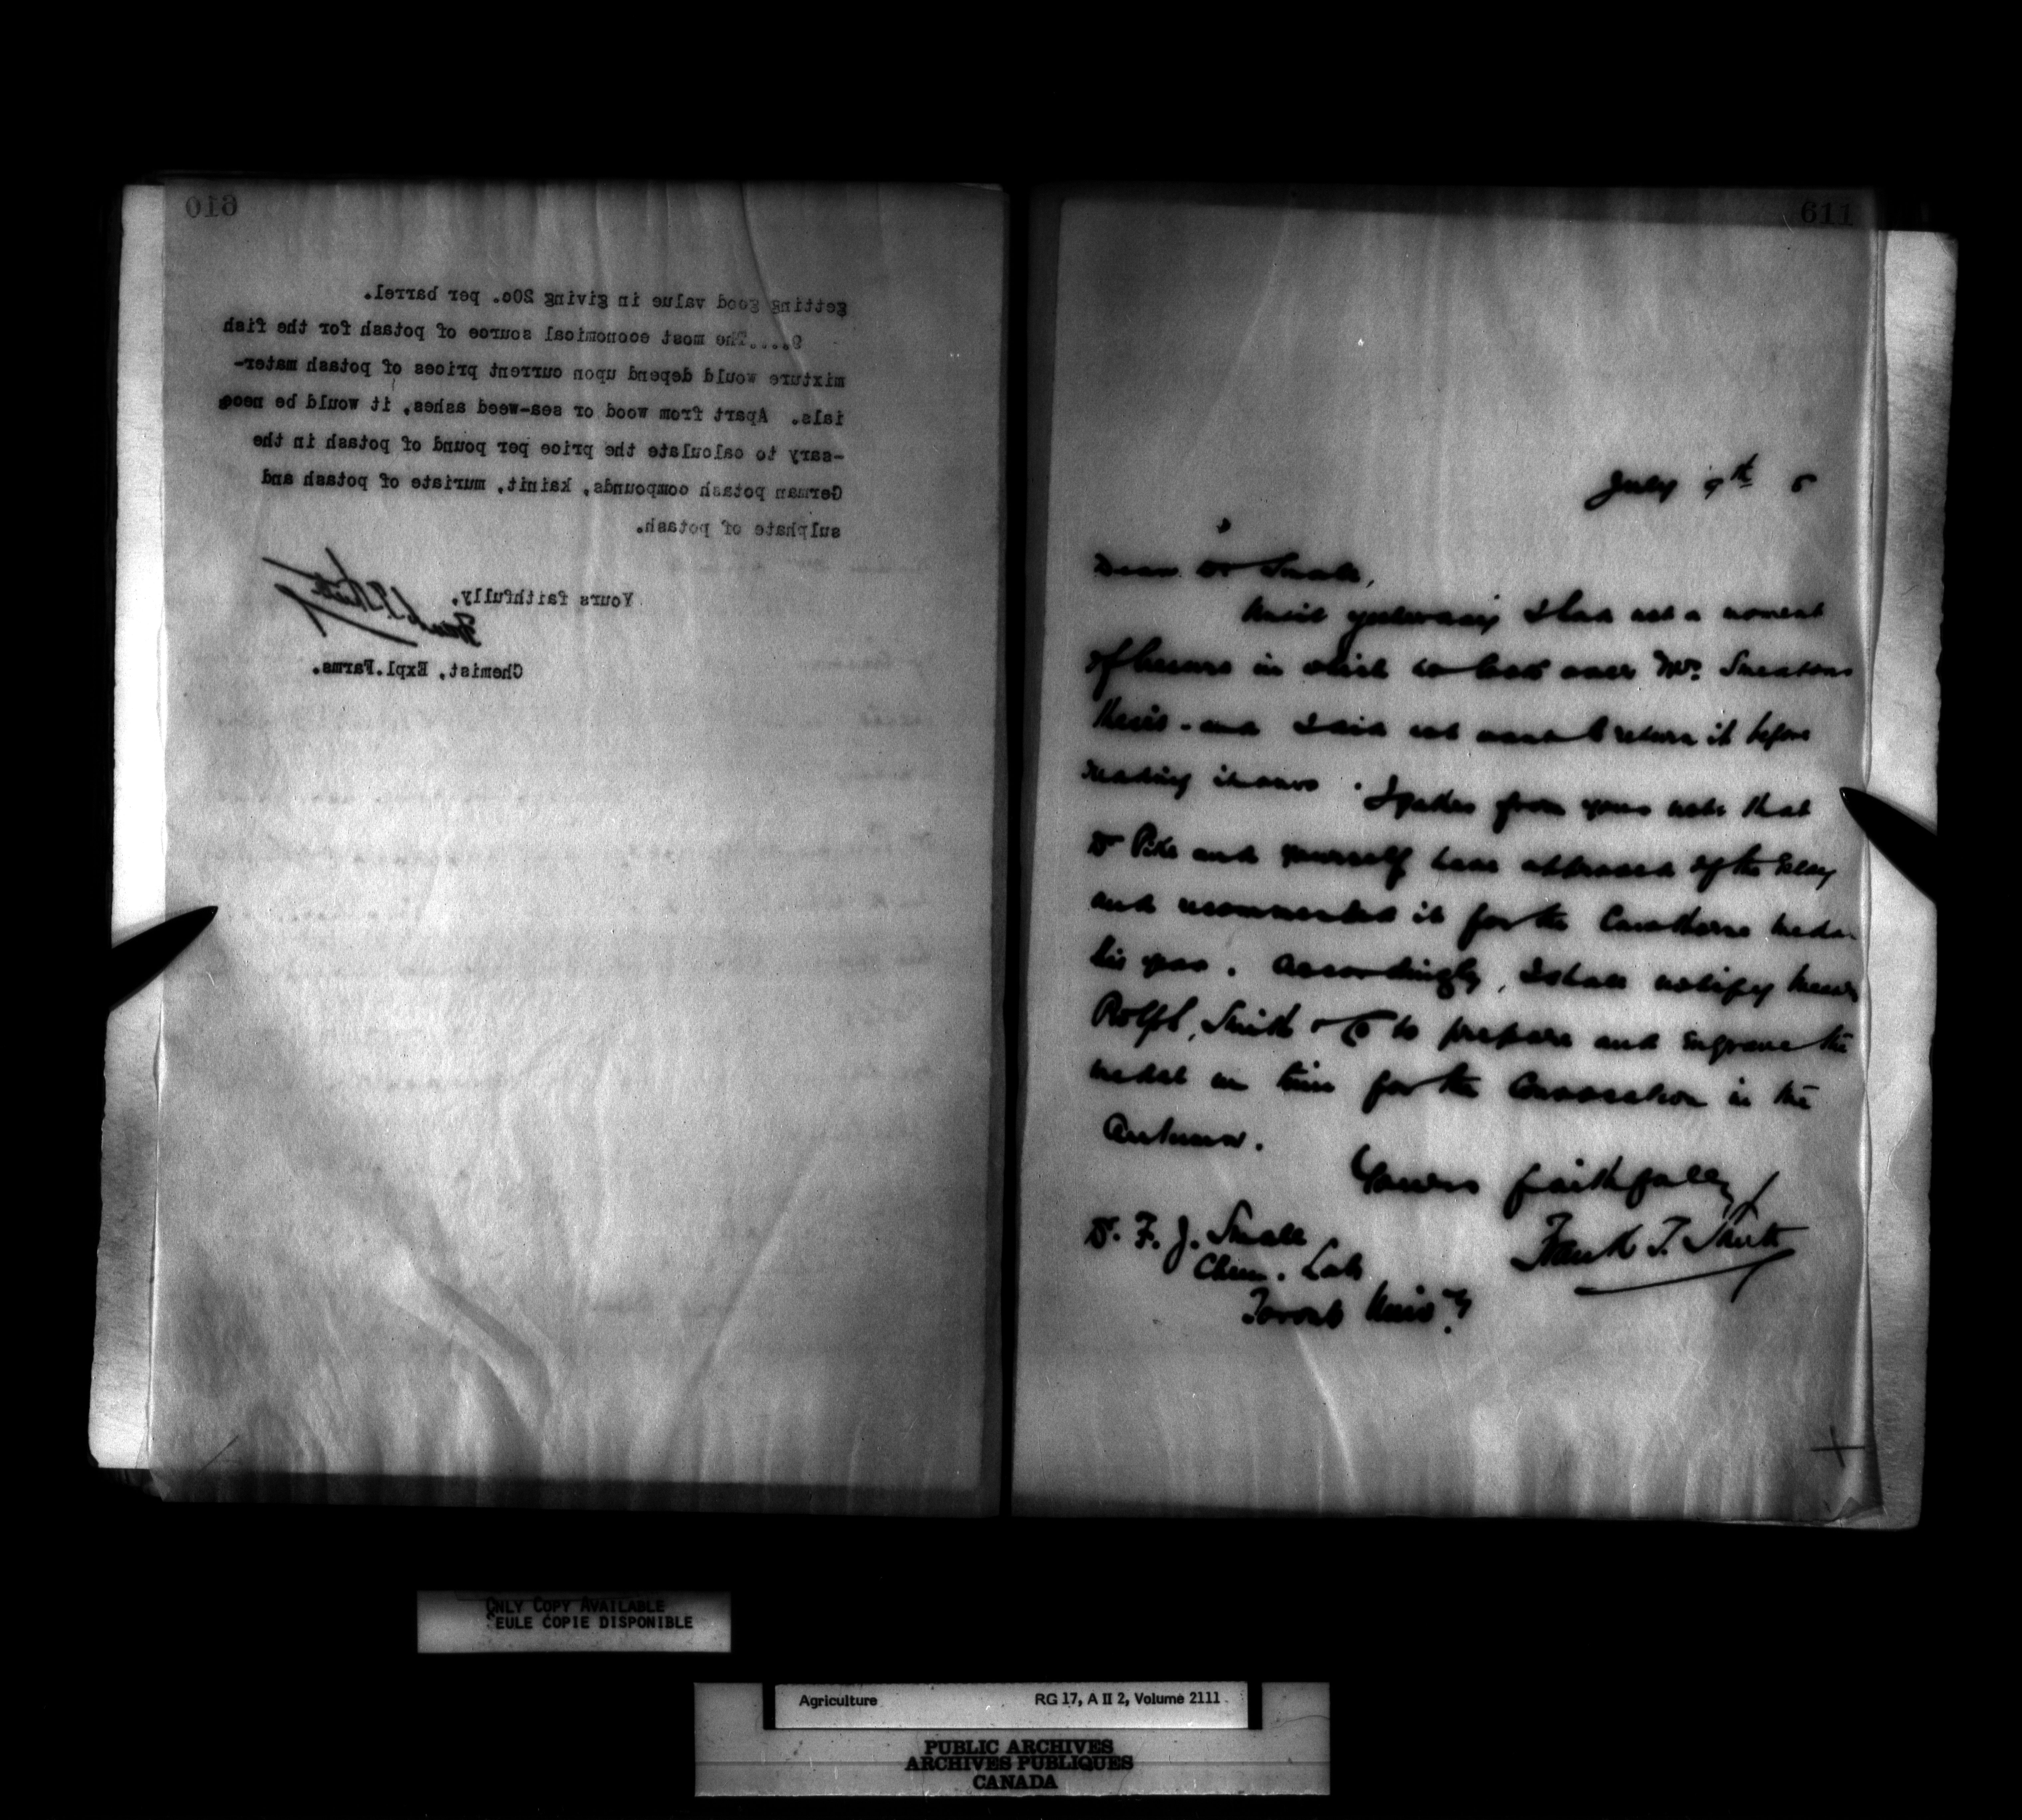 610
getting good value in giving 20c. per barrel.
9....The most economical source of potash for the fish
mixture would depend upon current prices of potash mater-
ials. Apart from wood or sea-weed ashes, it would be neces
-sary to calculate the price per pound of potash in the
German potash compounds, kainit, muriate of potash and
sulphate of potash.
Yours faithfully,
Frank T. Shutt
Chemist, Expl.Farms.
611
July 9th 5
Dear Dr Smale,
Until yesterday I had not a moment
of leisure in which to look over Mr. Smeatons
thesis - and I did not want to return it before
reading it over. I gather from your note that
Dr Pike and yourself have approved of the Essay
and recommended it for the Cawthorne medal
this year. Accordingly, I shall notify Messrs
Rolph, Smith & Co to prepare and engrave the
medal in time for the Convocation in the
Autumn.
Yours faithfully
Frank T. Shutt
Dr. F. J. Smale
Chem. Lab.
Toronto Univ.y
ONLY COPY AVAILABLE
SEULE COPIE DISPONIBLE
Agriculture RG 17, A II 2, Volume 2111
PUBLIC ARCHIVES
ARCHIVES PUBLIQUES
CANADA